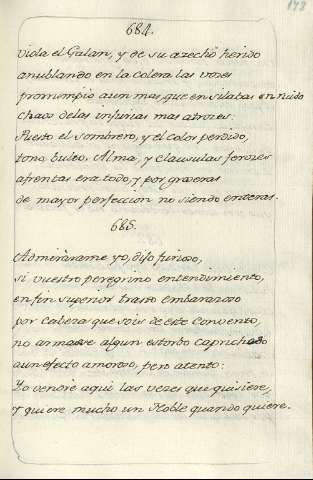 178
684.
viola el Galan, y de su azecho herido
anublando en la colera las vozes
prorrumpio aun mas, que en silabas en ruido
chaos de las injurias mas atrozes:
Puesto el sombrero, y el color perdido,
tono, bulto, Alma, y clausulas ferozes
afrentas era todo, y por groseras
de mayor perfeccion no siendo enteras.
685.
Admirárame yo, dijo furioso,
si vuestro peregrino entendimiento,
en fin superior trasto embarazoso
por cabeza que sois de este convento,
no armasse algun estorbo caprichoso
a un efecto amoroso, pero atento:
Yo vendre aqui las vezes que quisiere,
y quiere mucho un Noble quando quiere.